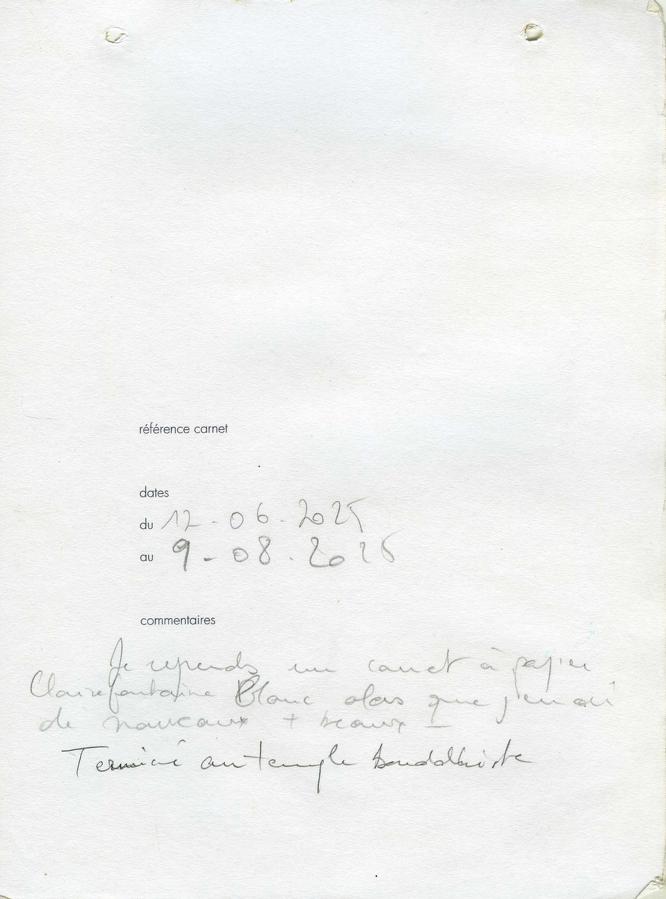 référence carnet
dates
du 12-06-2025
au 9-08-2025
commentaires
Je reprends un carnet à papier
Clairefontaine Blanc alors que j'en ai
de nouveaux + beaux –
Terminé au temple bouddhiste